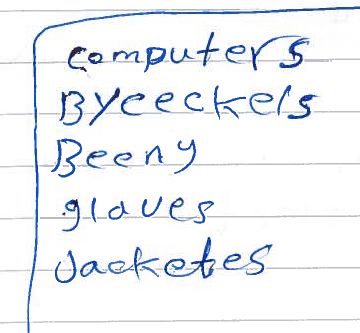 computers
Byceeckels
Beeny
glaves
Jacketes